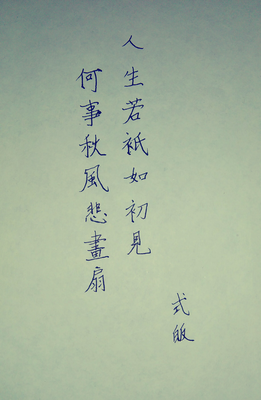 人生若衹如初見
何事秋風悲畫扇
式皈